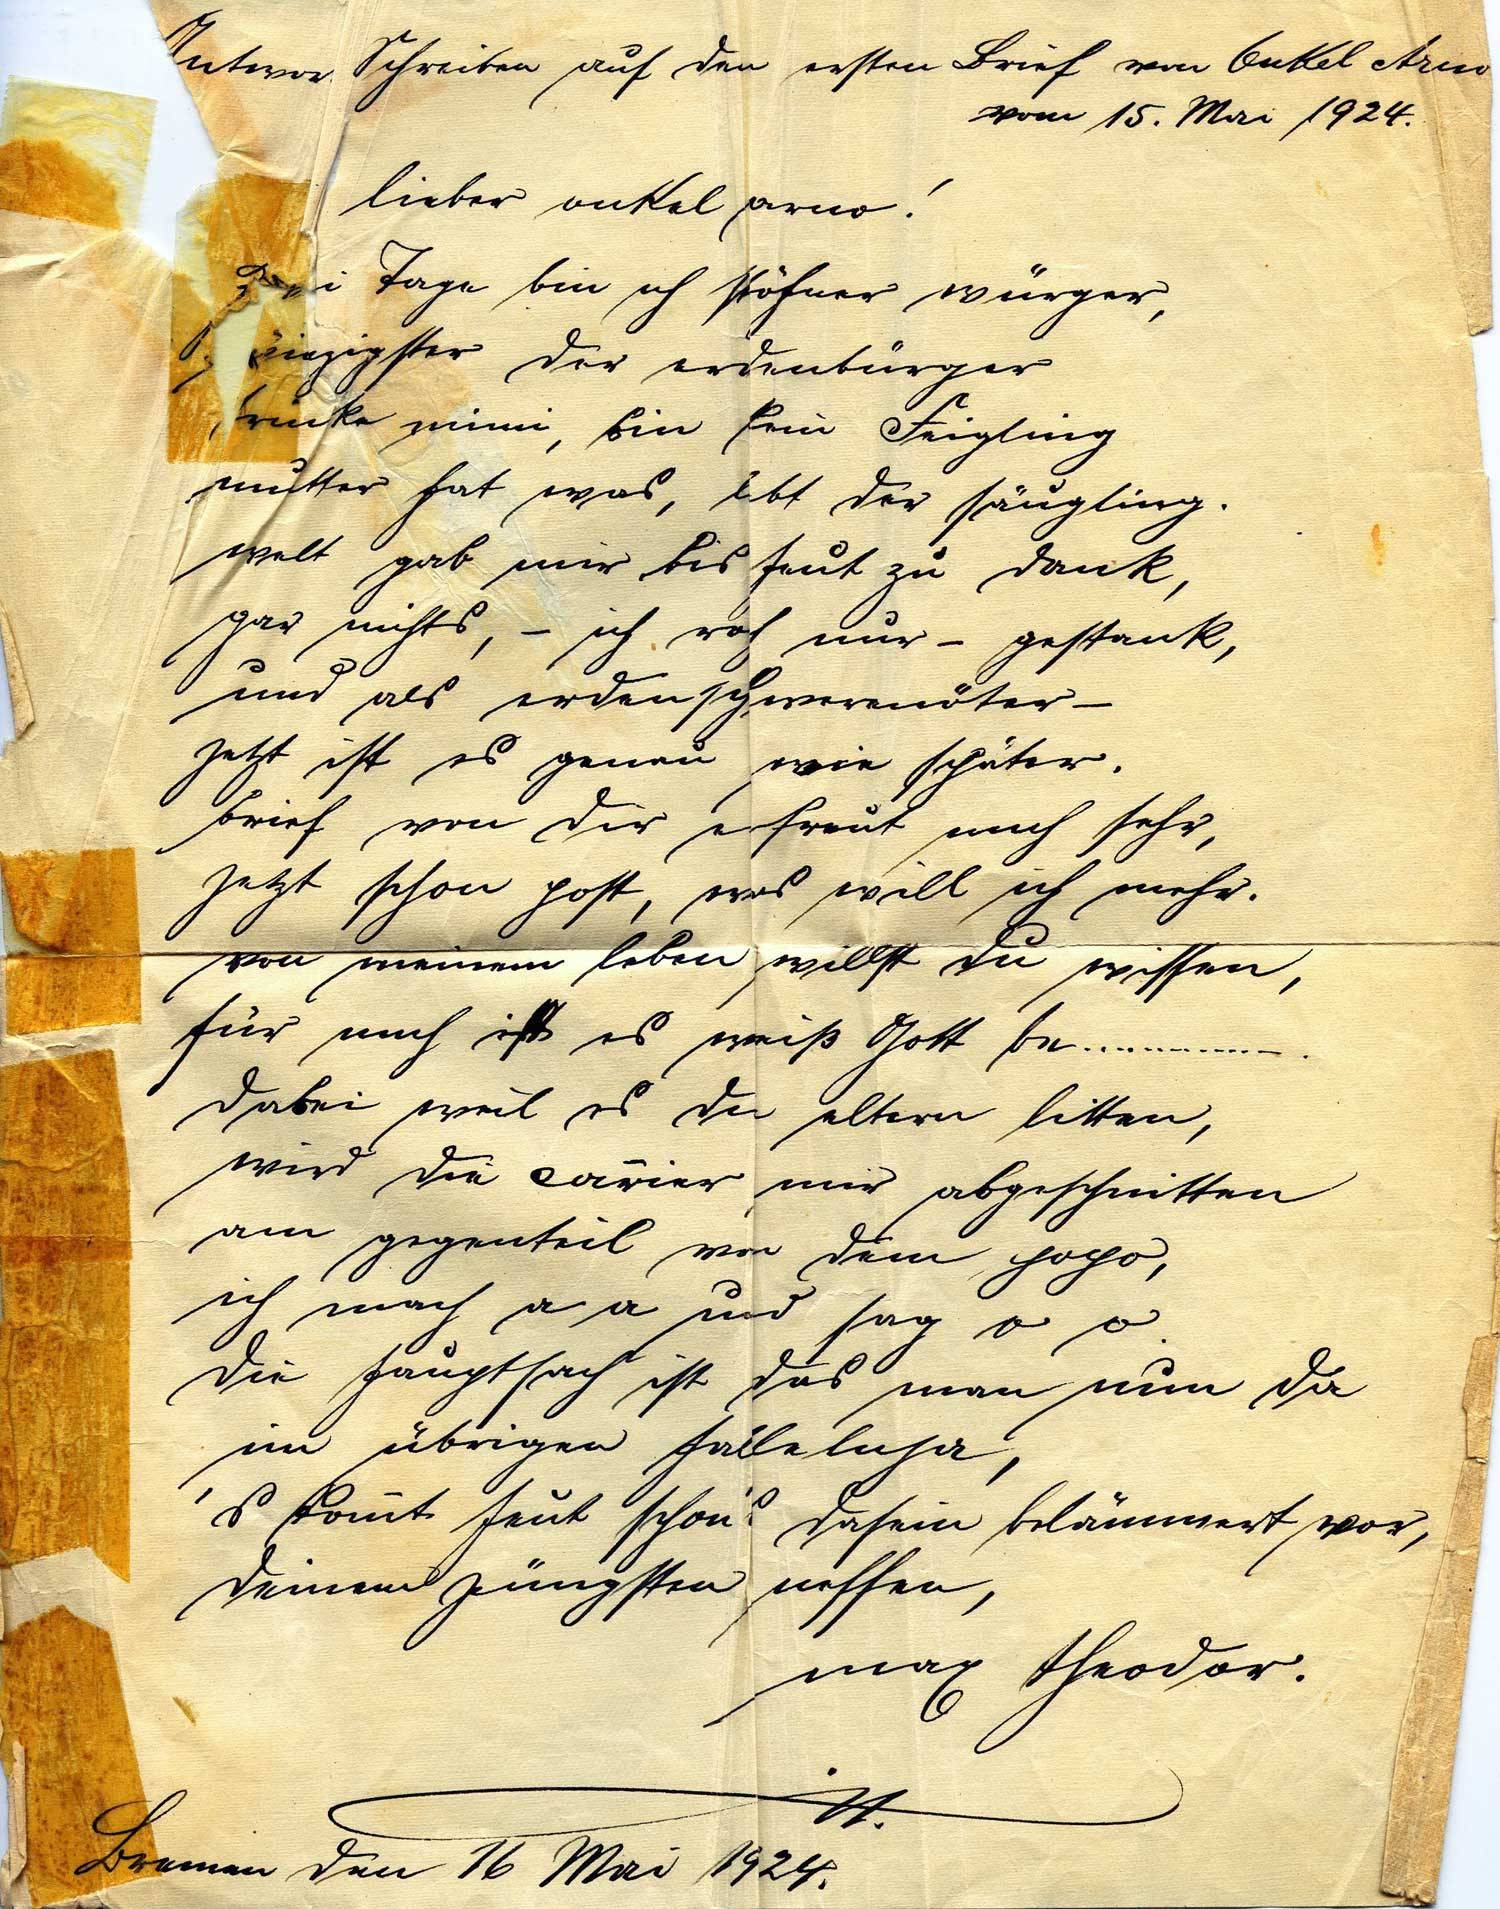 Antwor Schreiben auf den ersten Brief von Onkel Arno
vom 15. Mai 1924.
lieber onkel arno!
Tage bin ich schöner würger,
der erdenbürger
trinke mimi, bin kein Feigling
mutter hat was, lebt der säugling.
welt gab mir bis heut zu dank,
gar nichts, – ich roch nur – gestank,
und als erdenschwerenöter –
jetzt ist es genau wie später.
brief von dir erfreut mich sehr,
jetzt schon post, was will ich mehr.
von meinem leben willst du wissen,
für mich ist es weiß Gott be...............
dabei weil es die eltern litten,
wird die carrier mir abgeschnitten
am gegenteil von dem popo,
ich mach a a und sag o o.
die hauptsach ist das man nun da
im übrigen halleluja,
's kom̅t heut schon's dasein belämmert vor,
deinem jüngsten neffen,
max theodor.
Bremen den 16 Mai 1924.